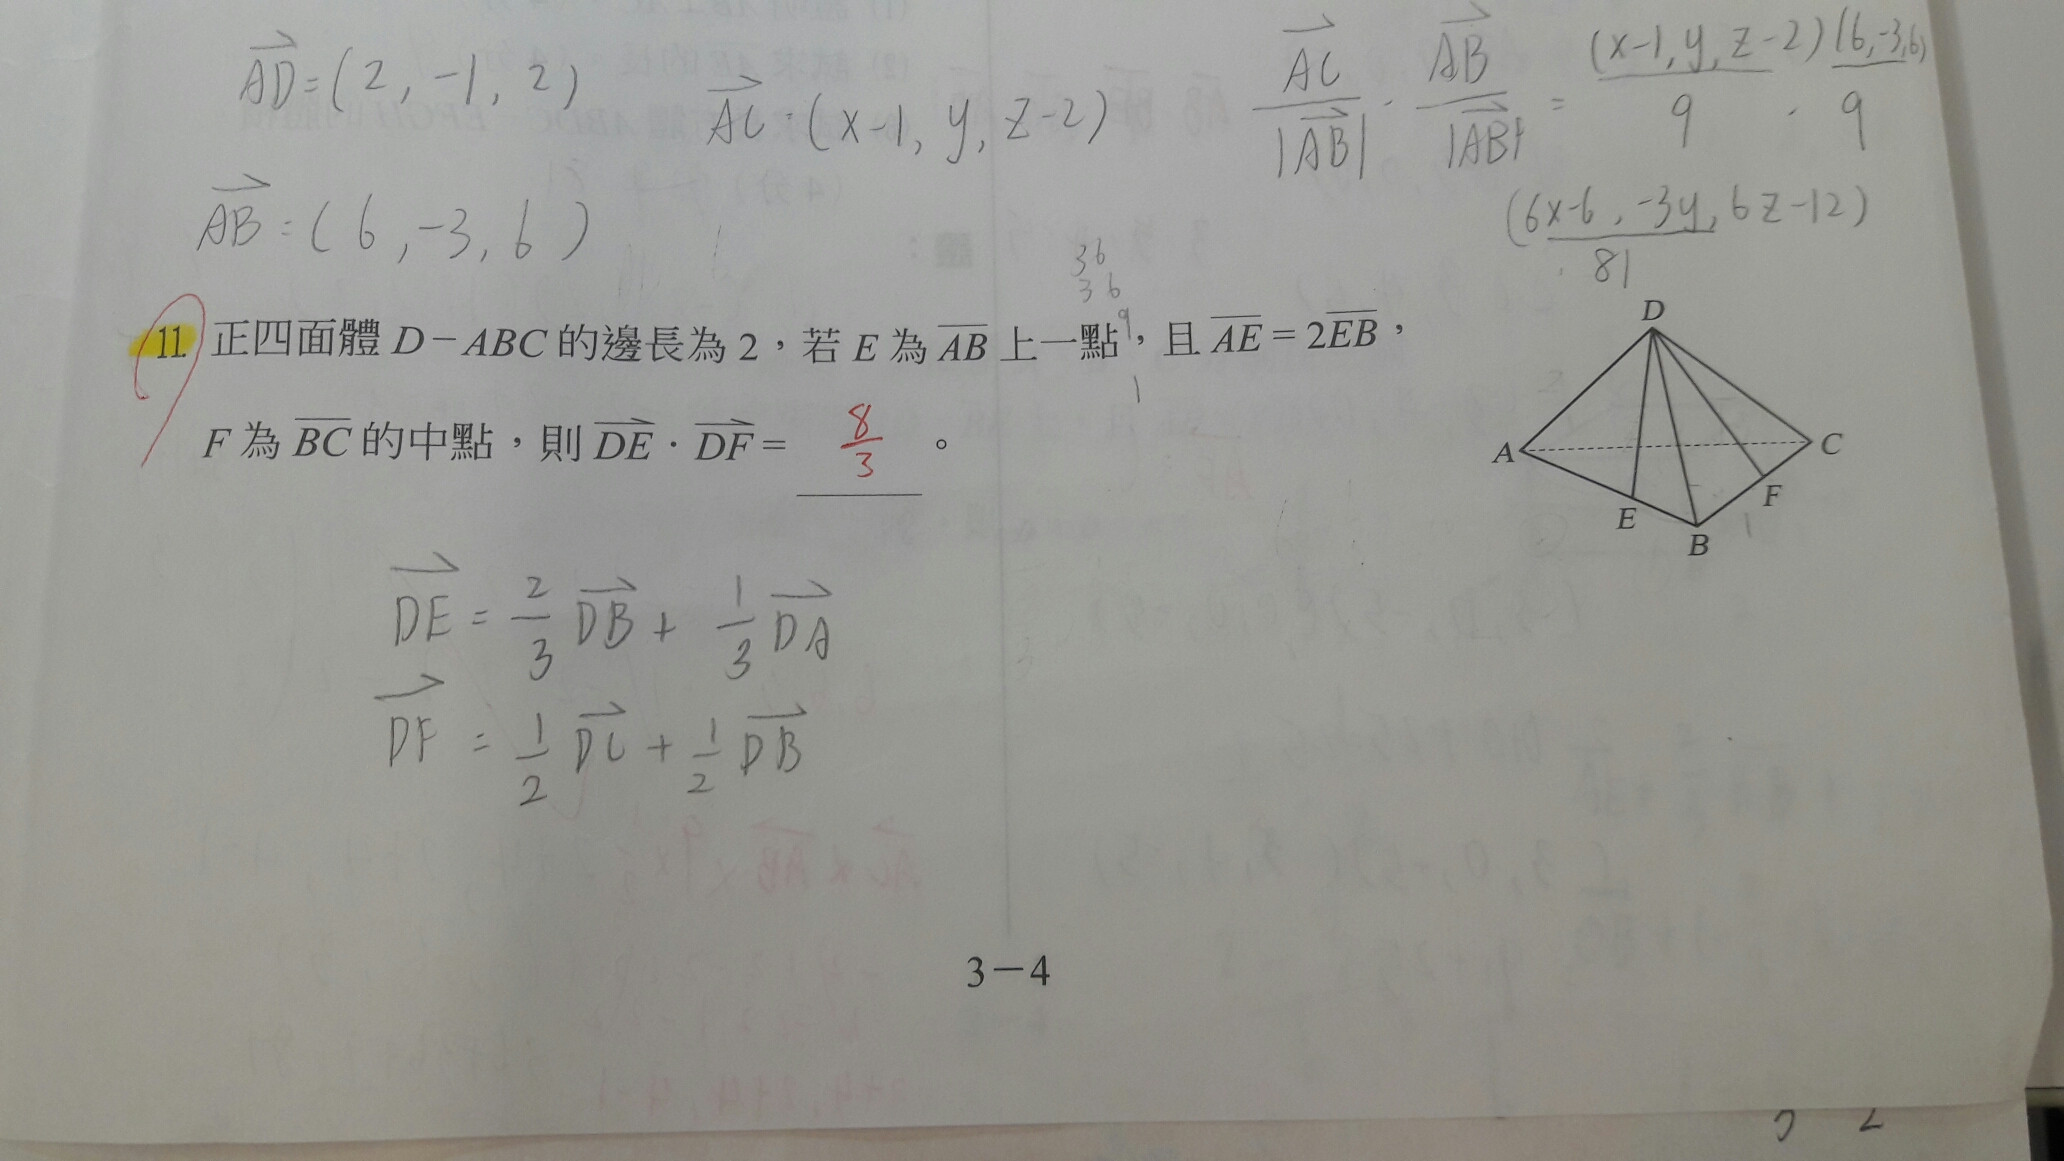 AD=(2,-1,2)
AC=(x-1, y, z-2)
AC/|AB| · AB/|AB| = (x-1, y, z-2)/9 · (6,-3,6)/9
AB=(6,-3,6)
(6x-6, -3y, 6z-12)/81
36
36
9
1
11. 正四面體 D-ABC 的邊長為 2，若 E 為 AB 上一點，且 AE = 2EB，
F 為 BC 的中點，則 DE · DF = 8/3 。
D
A
C
E
F
B
DE = 2/3 DB + 1/3 DA
DF = 1/2 DC + 1/2 DB
3-4